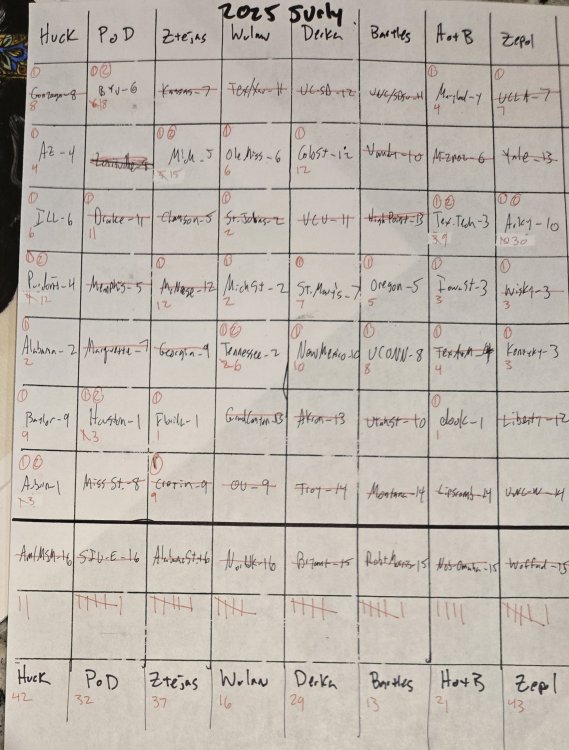 2025 Surly
Huck PoD Ztejas Wolan Derka Bartles HotB Zepol
① ①② ① ①
Gonzaga-8 BYU-6 Kansas-7 Tex/Xav-11 UCSD-12 UNC/SDSU-11 Maryland-4 UCLA-7
8 6 18 4 7
① ①② ① ①
AZ-4 Louisville-8 Mich-5 Ole Miss-6 ColoSt-12 Vandy-10 Mizzou-6 Yale-13
4 5 15 6 12
① ① ① ①② ①②
ILL-6 Drake-11 Clemson-5 St. Johns-2 VCU-11 High Point-13 Tex. Tech-3 Arky-10
6 11 2 3 9 10 30
①② ① ① ① ① ① ①
Purdue-4 Memphis-5 McNeese-12 Mich St-2 St. Mary's-7 Oregon-5 Iowa St-3 Wisky-3
4 12 12 2 7 5 3 3
① ①② ① ① ① ①
Alabama-2 Marquette-7 Georgia-9 Tennessee-2 New Mexico-10 UCONN-8 Tex A&M-4 Kentucky-3
2 2 6 10 8 4 3
① ①② ① ①
Baylor-9 Houston-1 Florida-1 Grand Canyon-13 Akron-13 Utah St-10 dook-1 Liberty-12
9 1 3 1 1
①② ①
Auburn-1 Miss St.-8 Creighton-9 OU-9 Troy-14 Montana-14 Lipscomb-14 UNC-W-14
1 3 9
Am/MSM-16 SIU-E-16 Alabama St-16 Norfolk-16 Bryant-15 Robt Morris-15 Neb Omaha-15 Wofford-15
Huck PoD Ztejas Wolan Derka Bartles HotB Zepol
42 32 37 16 29 13 21 43